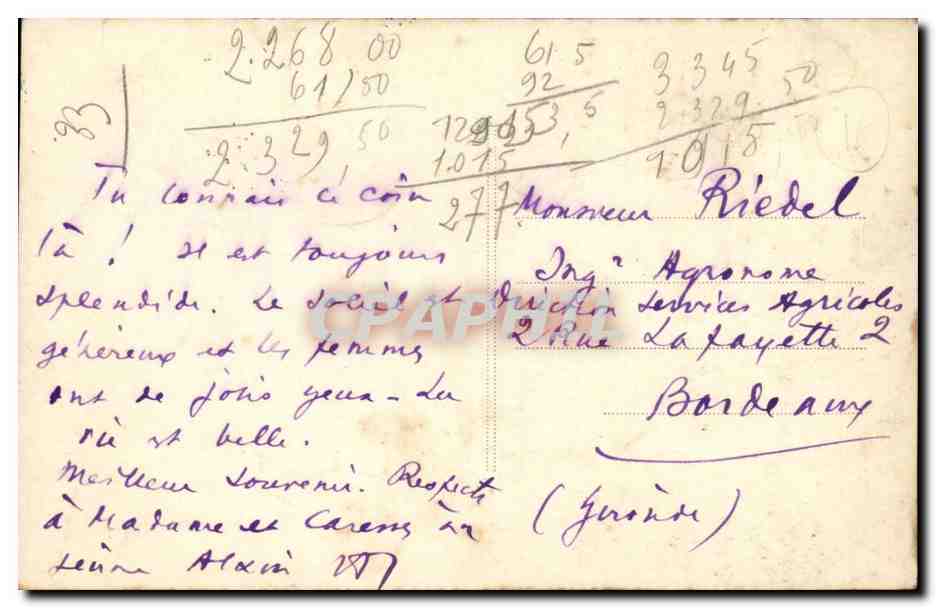 2.268 00
61,50
2.329,50
61 5
92
153,5
3 345
2.329.50
1 015
1.015
277
33
Tu connais ce coin
là ! Il est toujours
splendide. Le soleil est
généreux et les femmes
ont de jolis yeux - La
vie est belle.
Meilleur souvenir. Respects
à Madame et Caresses au
jeune Alain
Monsieur Riedel
Ingr Agronome
Direction Services Agricoles
2 Rue Lafayette 2
Bordeaux
(Gironde)
CPAPHIL